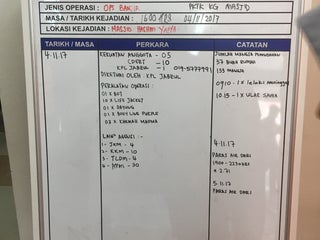 JENIS OPERASI : OPS BANJIR PKTK KG MASJID
MASA / TARIKH KEJADIAN : 1600 HRS 04/11/2017
LOKASI KEJADIAN : MASJID HASHIM YAHYA
TARIKH / MASA PERKARA CATATAN
4.11.17
KEKUATAN ANGGOTA - 05
- 10
KPL JABRUL - 1 019-5777991
DIKETUAI OLEH KPL JABRUL
PERALATAN OPERASI :
01 X BOT
10 X LIFE JACKET
01 X
01 X BOT LIVE
02 X KHEMAH MAMPA
LAIN AGENSI :
1- JKM - 4
2- KKM - 10
3- TLDM - 4
4- APM - 30
JUMLAH MANGSA PEMINDAHAN
37 BUAH RUMAH
133 MANGSA
0910 - 1 X lelaki meninggal
1015 - 1 X ULAR SAWA
4.11.17
PARAS AIR SUNGAI
1900 - 2230HRS
± 2.71
5.11.17
PARAS AIR